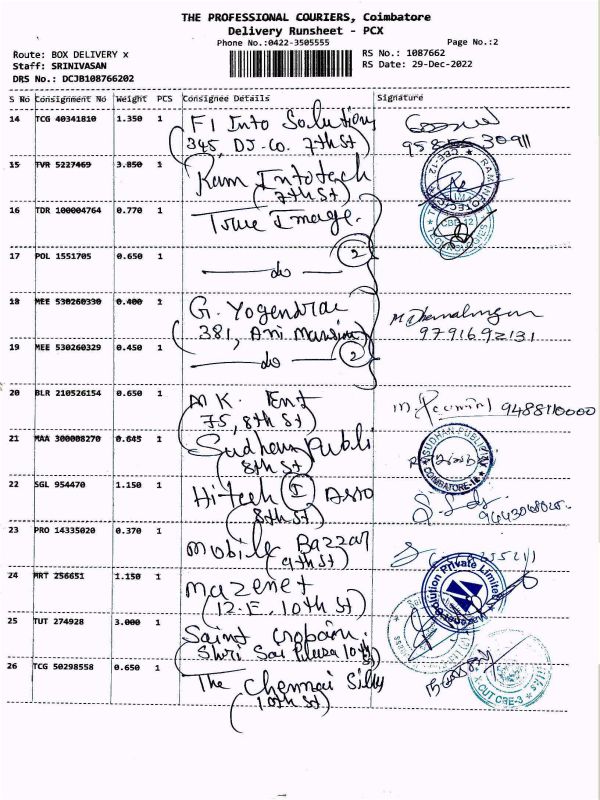 THE PROFESSIONAL COURIERS, Coimbatore
Delivery Runsheet - PCX
Phone No.:0422-3505555
Page No.:2
Route: BOX DELIVERY x
RS No.: 1087662
Staff: SRINIVASAN
RS Date: 29-Dec-2022
DRS No.: DCJB108766202
S No Consignment No Weight PCS Consignee Details Signature
14 TCG 40341810 1.350 1 FI Into Solutions
(345, DJ-Co. 7th St)
15 TVR 5227469 3.850 1 Ram Infotech
(7th St)
16 TDR 100004764 0.770 1 True Image.
17 POL 1551705 0.650 1 do 2
18 MEE 530260330 0.400 1 G. Yogendra
(381, Ani Mansion)
9791692131
19 MEE 530260329 0.450 1 do 2
20 BLR 210526154 0.650 1 M K. Ent
9488110000
(75, 8th St)
21 MAA 300008270 0.645 1 Sudhan Publi
(8th St)
SUDHAN PUBLIC
COIMBATORE
22 SGL 954470 1.150 1 Hi-tech I Asso
(8th St.)
23 PRO 14335020 0.370 1 Mobile Bazzar
(9th St)
24 MRT 256651 1.150 1 Mazenet
(12-E. 10th St)
Solution Private Limited
25 TUT 274928 3.000 1 Saint
26 TCG 50298558 0.650 1 The Chennai Silks
(10th St)
CUT CBE-3